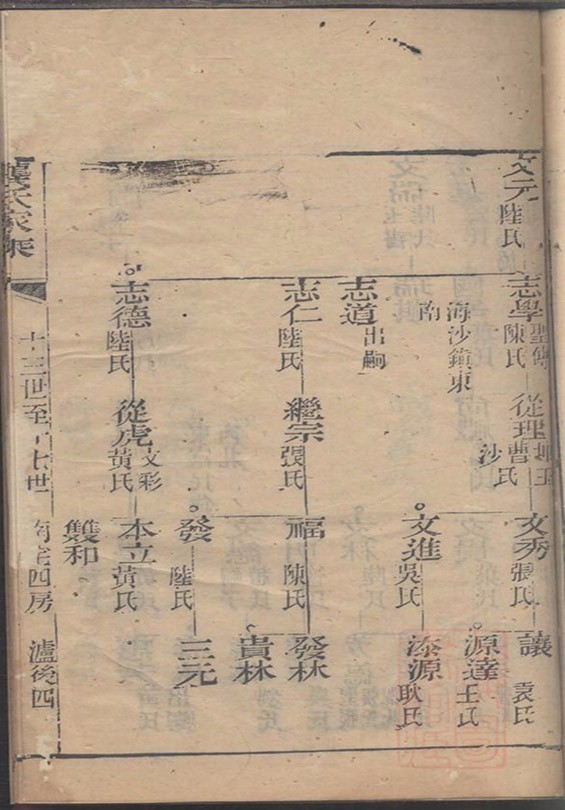 文元 陸氏
志學 聖傳 陳氏
從理 曹氏
海沙鎮東
南
沙
志道 出嗣
志仁 陸氏
繼宗 張氏
志德 陸氏
從虎 文彩 黃氏
文秀 張氏
讓 袁氏
源達 王氏
文進 吳氏
添源 耿氏
福 陳氏
發林
貴林
發 陸氏
三元
本立 黃氏
雙和
龔氏家乘
十三世至十七世
四房
瀘後四